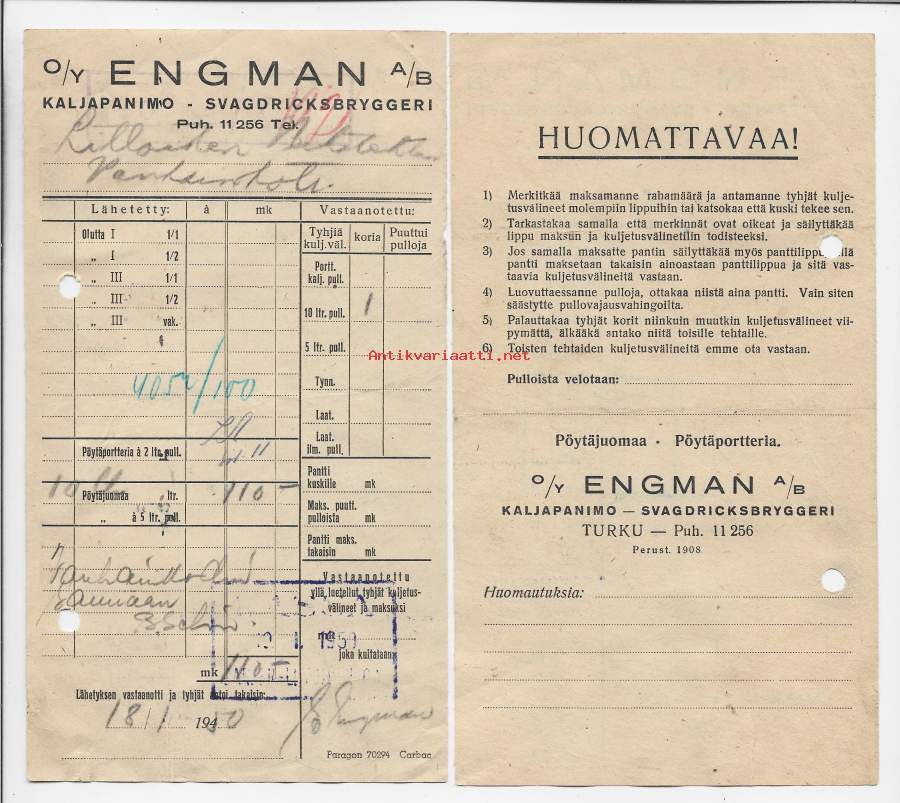 O/Y ENGMAN A/B
KALJAPANIMO - SVAGDRICKSBRYGGERI
Puh. 11 256 Tel.
Lähetetty: à mk Vastaanotettu:
Tyhjiä kulj. väl. koria Puuttui pulloja
Olutta I 1/1
„ I 1/2
„ III 1/1
„ III 1/2
„ III vak.
Portt. kalj. pull.
10 ltr. pull. 1
5 ltr. pull.
Tynn.
Laat.
Laat. ilm. pull.
4052/100
Pöytäportteria à 2 ltr. pull.
Pöytäjuomaa ltr. 110-
„ à 5 ltr. pull.
Pantti kuskille mk
Maks. puutt. pulloista mk
Pantti maks. takaisin mk
Vastaanotettu
yllä luetellut tyhjät kuljetus-
välineet ja maksuksi
joka kuitataan
mk 110-
Lähetyksen vastaanotti ja tyhjät antoi takaisin:
18/1 1950
E Engman
Paragon 70294 Carbac
HUOMATTAVAA!
1) Merkitkää maksamanne rahamäärä ja antamanne tyhjät kulje-
tusvälineet molempiin lippuihin tai katsokaa että kuski tekee sen.
2) Tarkastakaa samalla että merkinnät ovat oikeat ja säilyttäkää
lippu maksun ja kuljetusvälinetilin todisteeksi.
3) Jos samalla maksatte pantin säilyttäkää myös panttilippu
pantti maksetaan takaisin ainoastaan panttilippua ja sitä vas-
taavia kuljetusvälineitä vastaan.
4) Luovuttaessanne pulloja, ottakaa niistä aina pantti. Vain siten
säästytte pullovajausvahingoilta.
5) Palauttakaa tyhjät korit niinkuin muutkin kuljetusvälineet vii-
pymättä, älkääkä antako niitä toisille tehtaille.
6) Toisten tehtaiden kuljetusvälineitä emme ota vastaan.
Pulloista velotaan:
Pöytäjuomaa - Pöytäportteria.
O/Y ENGMAN A/B
KALJAPANIMO — SVAGDRICKSBRYGGERI
TURKU — Puh. 11 256
Perust. 1908
Huomautuksia:
Antikvariaatti.net